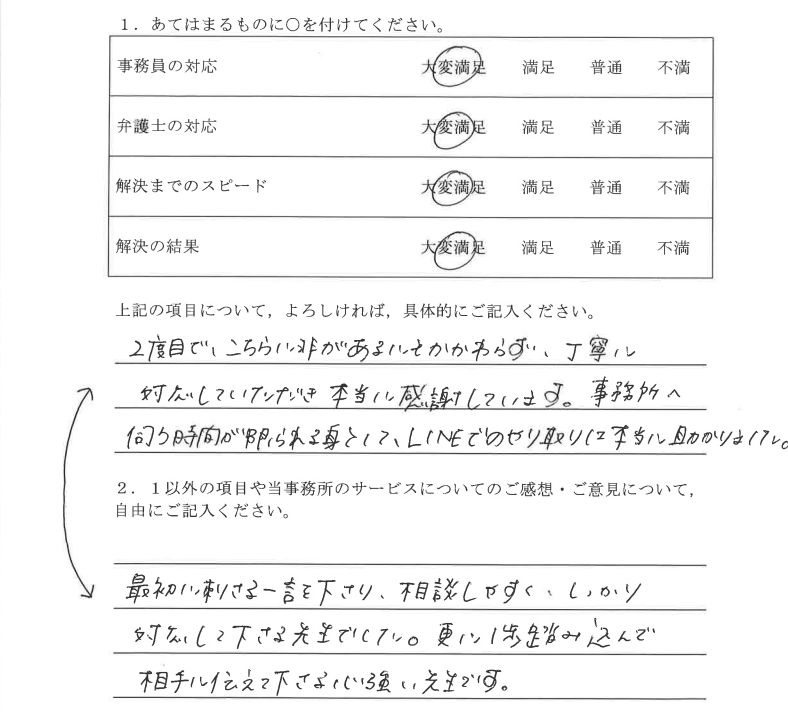 １．あてはまるものに○を付けてください。
事務員の対応 大変満足 満足 普通 不満
弁護士の対応 大変満足 満足 普通 不満
解決までのスピード 大変満足 満足 普通 不満
解決の結果 大変満足 満足 普通 不満
上記の項目について，よろしければ，具体的にご記入ください。
2度目で、こちらに非があるにもかかわらず、丁寧に
対応していただき本当に感謝しています。事務所へ
伺う時間が限られる身として、LINEでのやり取りは本当に助かりました。
２．１以外の項目や当事務所のサービスについてのご感想・ご意見について，
自由にご記入ください。
最初に刺さる一言を下さり、相談しやすく、しっかり
対応して下さる先生でした。更に1歩踏み込んで
相手に伝えて下さる心強い先生です。